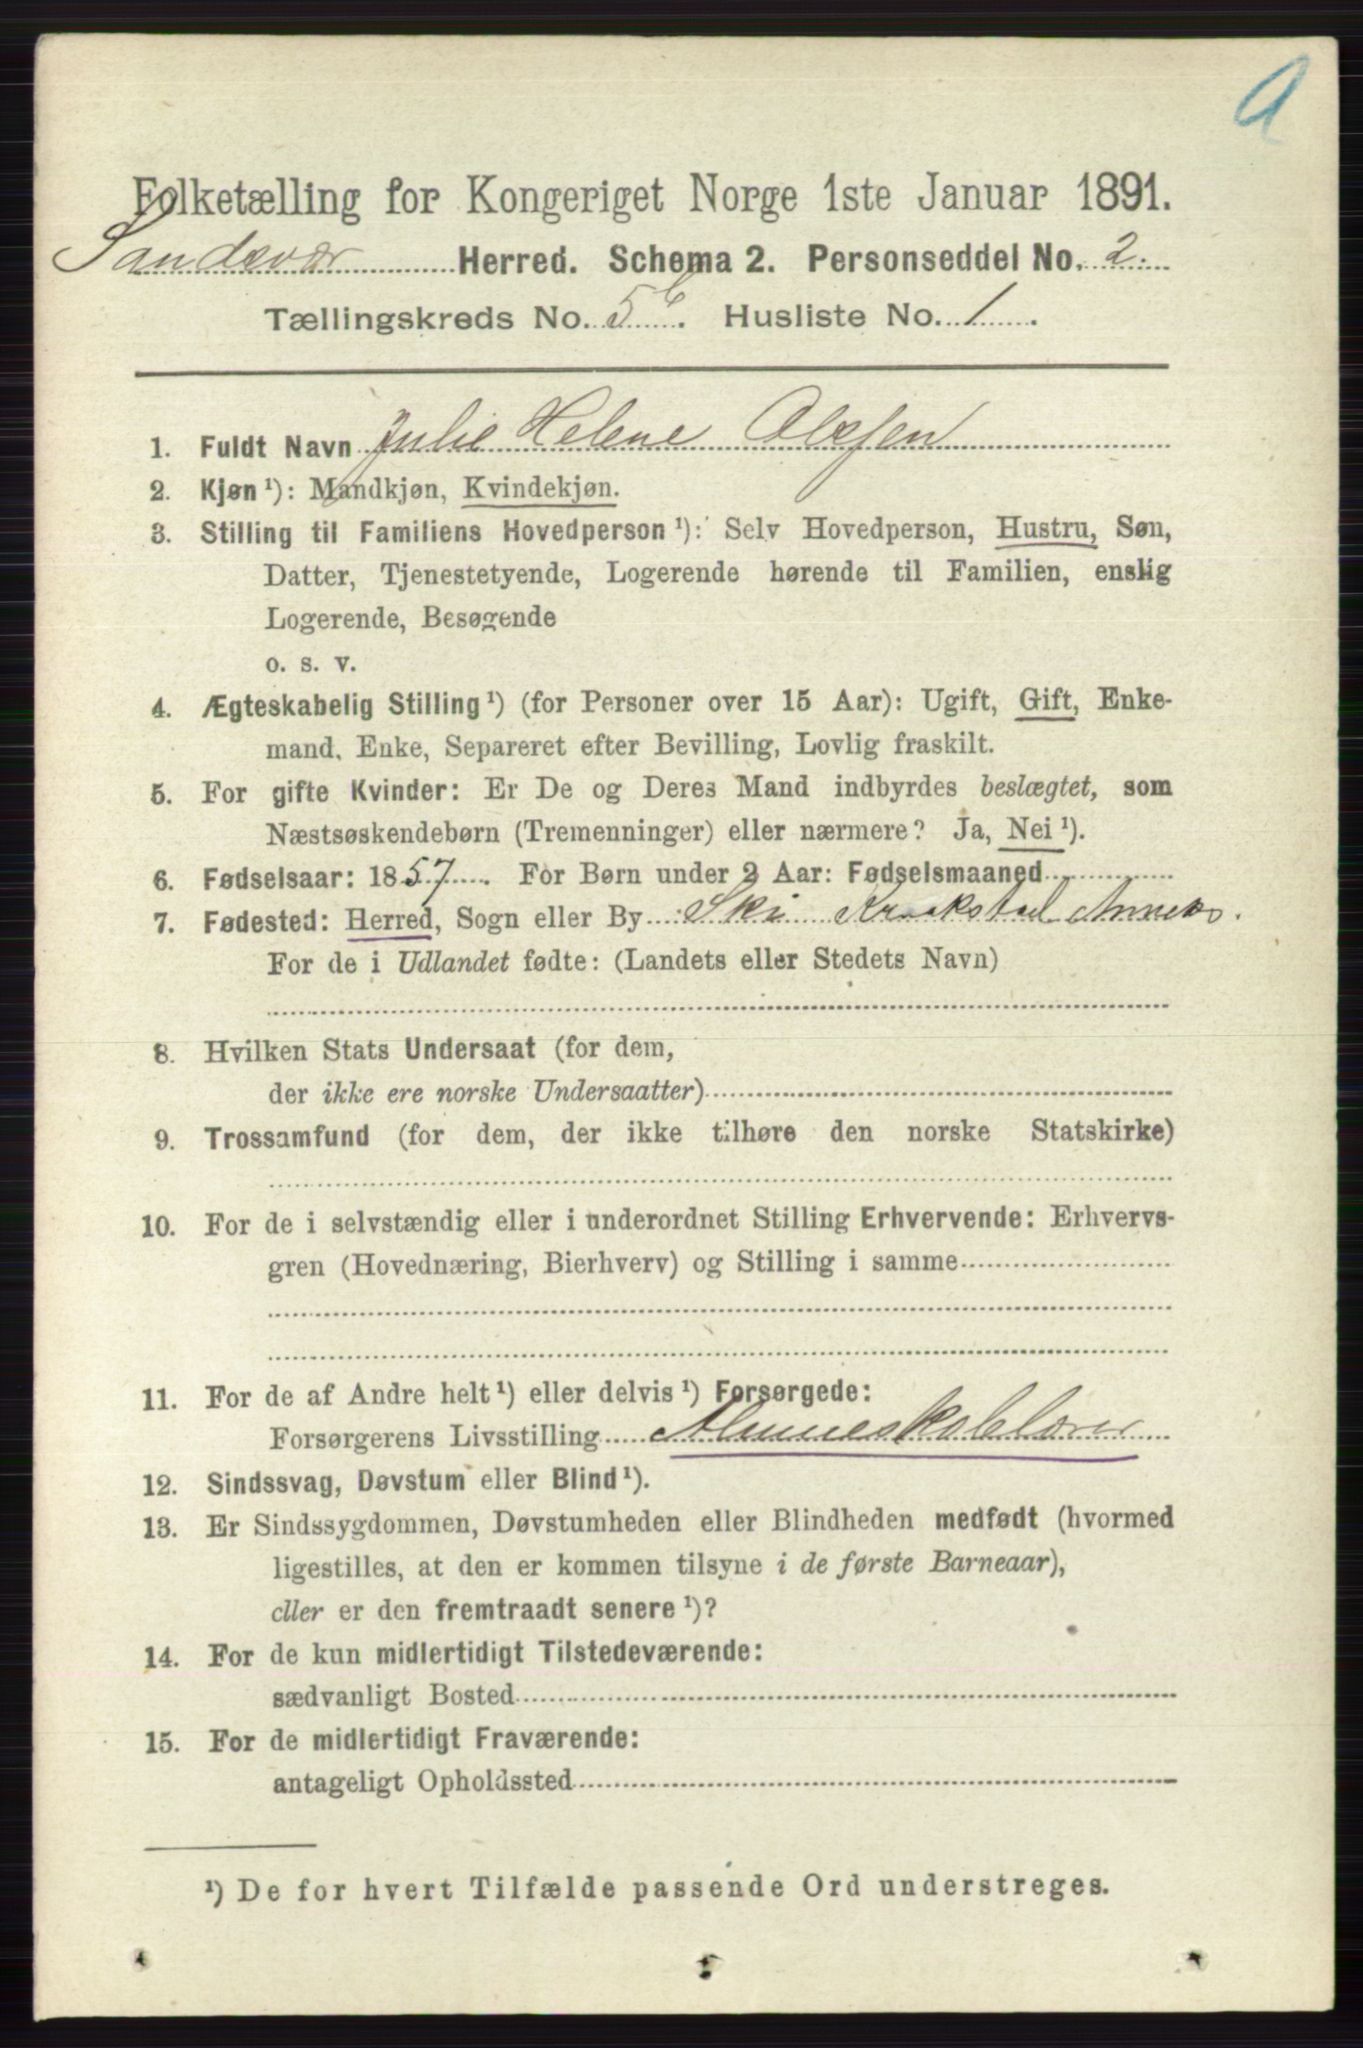 A
Folketælling for Kongeriget Norge 1ste Januar 1891.
Sandsvær Herred. Schema 2. Personseddel No. 2.
Tællingskreds No. 5 c. Husliste No. 1.
1. Fuldt Navn Julie Helene Olsen
2. Kjøn ¹): Mandkjøn, Kvindekjøn.
3. Stilling til Familiens Hovedperson ¹): Selv Hovedperson, Hustru, Søn,
Datter, Tjenestetyende, Logerende hørende til Familien, enslig
Logerende, Besøgende
o. s. v.
4. Ægteskabelig Stilling ¹) (for Personer over 15 Aar): Ugift, Gift, Enke-
mand, Enke, Separeret efter Bevilling, Lovlig fraskilt.
5. For gifte Kvinder: Er De og Deres Mand indbyrdes beslægtet, som
Næstsøskendebørn (Tremenninger) eller nærmere? Ja, Nei ¹).
6. Fødselsaar: 1857. For Børn under 2 Aar: Fødselsmaaned
7. Fødested: Herred, Sogn eller By Ski Kraakstad Anneks.
For de i Udlandet fødte: (Landets eller Stedets Navn)
8. Hvilken Stats Undersaat (for dem,
der ikke ere norske Undersaatter)
9. Trossamfund (for dem, der ikke tilhøre den norske Statskirke)
10. For de i selvstændig eller i underordnet Stilling Erhvervende: Erhvervs-
gren (Hovednæring, Bierhverv) og Stilling i samme
11. For de af Andre helt ¹) eller delvis ¹) Forsørgede:
Forsørgerens Livsstilling Almueskolelærer
12. Sindssvag, Døvstum eller Blind ¹).
13. Er Sindssygdommen, Døvstumheden eller Blindheden medfødt (hvormed
ligestilles, at den er kommen tilsyne i de første Barneaar),
eller er den fremtraadt senere ¹)?
14. For de kun midlertidigt Tilstedeværende:
sædvanligt Bosted
15. For de midlertidigt Fraværende:
antageligt Opholdssted
¹) De for hvert Tilfælde passende Ord understreges.